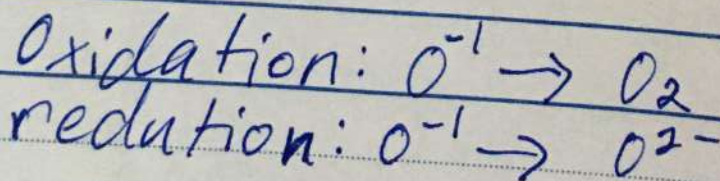 Oxidation: O⁻¹ → O₂
redution: O⁻¹ → O²⁻